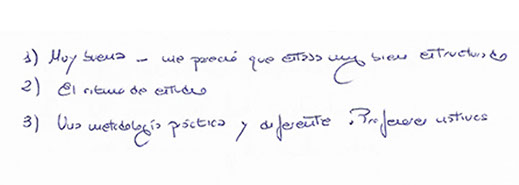 1) Muy buena - me pareció que estaba muy bien estructurado
2) El ritmo de estudio
3) Una metodología práctica y diferente. Profesores